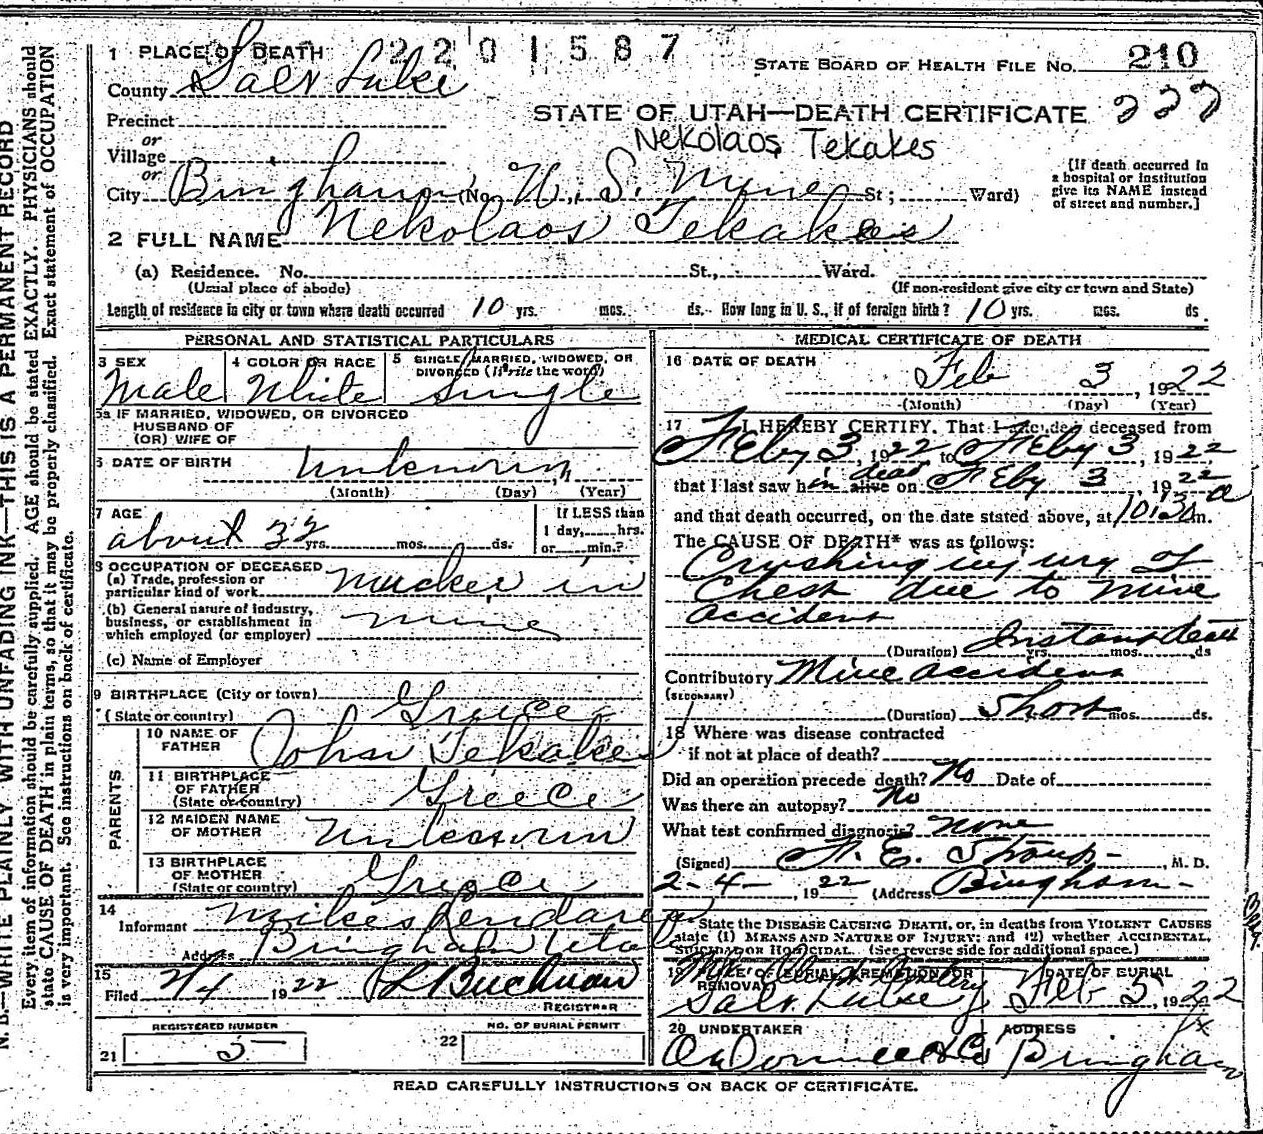 1 PLACE OF DEATH 2201587
STATE BOARD OF HEALTH FILE No. 210
County Salt Lake
STATE OF UTAH—DEATH CERTIFICATE 227
Precinct
or
Village
Nekolaos Tekakes
or
City Bingham (No. U. S. Mine St; Ward)
[If death occurred in
a hospital or institution
give its NAME instead
of street and number.]
2 FULL NAME Nekolaos Tekakes
(a) Residence. No. St., Ward.
(Usual place of abode) (If non-resident give city or town and State)
Length of residence in city or town where death occurred 10 yrs. mos. ds. How long in U. S., if of foreign birth? 10 yrs. mos. ds.
PERSONAL AND STATISTICAL PARTICULARS
3 SEX
Male
4 COLOR OR RACE
White
5 SINGLE, MARRIED, WIDOWED, OR
DIVORCED (Write the word)
Single
5a IF MARRIED, WIDOWED, OR DIVORCED
HUSBAND OF
(OR) WIFE OF
6 DATE OF BIRTH Unknown
(Month) (Day) (Year)
7 AGE
about 32 yrs. mos. ds.
If LESS than
1 day, hrs.
or min.?
8 OCCUPATION OF DECEASED
(a) Trade, profession or
particular kind of work mucker in
(b) General nature of industry,
business, or establishment in
which employed (or employer) mine
(c) Name of Employer
9 BIRTHPLACE (City or town)
(State or country) Greice
PARENTS
10 NAME OF
FATHER John Tekakes
11 BIRTHPLACE
OF FATHER
(State or country) Greece
12 MAIDEN NAME
OF MOTHER Unknown
13 BIRTHPLACE
OF MOTHER
(State or country) Greece
14
Informant Mikes
Address Bingham Utah
15
Filed 2/4 1922 Buchnau
REGISTRAR
REGISTERED NUMBER
21 5
NO. OF BURIAL PERMIT
22
MEDICAL CERTIFICATE OF DEATH
16 DATE OF DEATH
Feb 3, 1922
(Month) (Day) (Year)
17 I HEREBY CERTIFY, That I attended deceased from
Feby 3, 1922 to Feby 3, 1922
that I last saw him alive dead on Feby 3, 1922
and that death occurred, on the date stated above, at 10:30 a m.
The CAUSE OF DEATH* was as follows:
Crushing injury of
Chest due to mine
accident
(Duration) Instant death yrs. mos. ds
Contributory Mine accident
(SECONDARY)
(Duration) Short mos. ds.
18 Where was disease contracted
if not at place of death?
Did an operation precede death? No Date of
Was there an autopsy? No
What test confirmed diagnosis? None
(Signed) E. Straup, M. D.
2-4-, 1922 (Address) Bingham-
State the DISEASE CAUSING DEATH, or, in deaths from VIOLENT CAUSES
state (1) MEANS AND NATURE OF INJURY; and (2) whether ACCIDENTAL,
SUICIDAL or HOMICIDAL. (See reverse side for additional space.)
19 PLACE OF BURIAL, CREMATION OR
REMOVAL
Mt. Olivet Cemetery
Salt Lake
DATE OF BURIAL
Feb 5, 1922
20 UNDERTAKER
O'Donnell & Co
ADDRESS
Bingham
READ CAREFULLY INSTRUCTIONS ON BACK OF CERTIFICATE.
N. B.—WRITE PLAINLY WITH UNFADING INK—THIS IS A PERMANENT RECORD
Every item of information should be carefully supplied. AGE should be stated EXACTLY. PHYSICIANS should
state CAUSE OF DEATH in plain terms, so that it may be properly classified. Exact statement of OCCUPATION
is very important. See instructions on back of certificate.